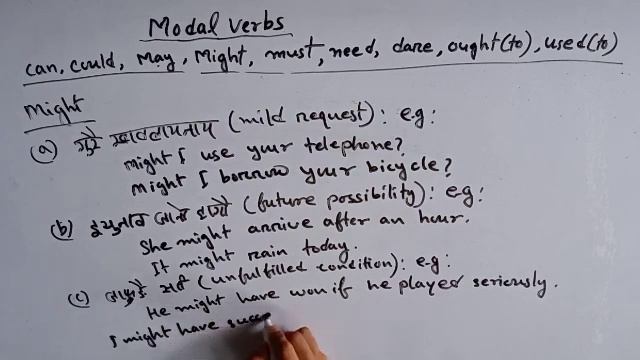 Modal verbs
can, could, May, Might, must, need, dare, ought(to), used(to)
Might
(a) (mild request): e.g:
Might I use your telephone?
Might I borrow your bicycle?
(b) (future possibility): e.g:
She might arrive after an hour.
It might rain today.
(c) (unfulfilled condition): e.g:
He might have won if he played seriously.
I might have succ